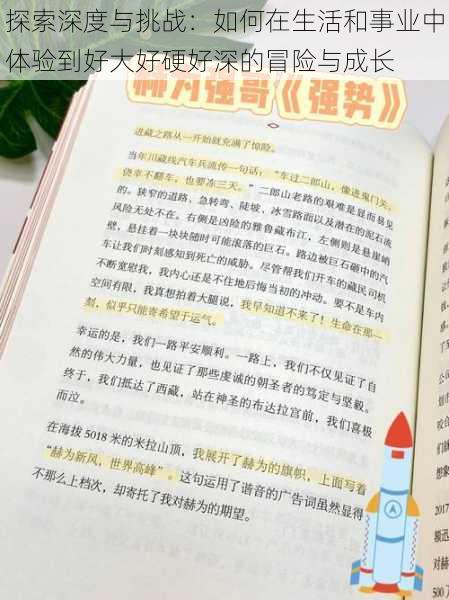 探索深度与挑战：如何在生活和事业中
体验到好大好硬好深的冒险与成长
赫为强哥《强势》
进藏之路从一开始就充满了惊险。
当年川藏线汽车兵流传一句话：“车过二郎山，像进鬼门关；
侥幸不翻车，也要冻三天。”二郎山老路的艰难是显而易见
的。狭窄的道路、急转弯、陡坡、冰雪路面以及潜在的泥石流
风险无处不在。右侧是凶险的雅鲁藏布江，左侧则是悬崖峭
壁，悬挂着一块块随时可能滚落的巨石。路边被巨石砸中的汽
车让我们时刻感知到死亡的威胁。尽管带我们开车的藏民司机
不断宽慰我，我内心还是不住地后悔当初的冲动。要不是车内
空间有限，我真想拍着大腿说，我早知道不来了！生命在那一
刻，似乎只能寄希望于运气。
幸运的是，我们一路平安顺利。一路上，我们不仅见证了自
然的伟大力量，也见证了那些虔诚的朝圣者的笃定与坚毅。
终于，我们抵达了西藏，站在神圣的布达拉宫前，我们喜极
而泣。
在海拔 5018 米的米拉山顶，我展开了赫为的旗帜，上面写着
“赫为新风，世界高峰”。这句运用了谐音的广告词虽然显得
不那么上档次，却寄托了我对赫为的期望。
2017